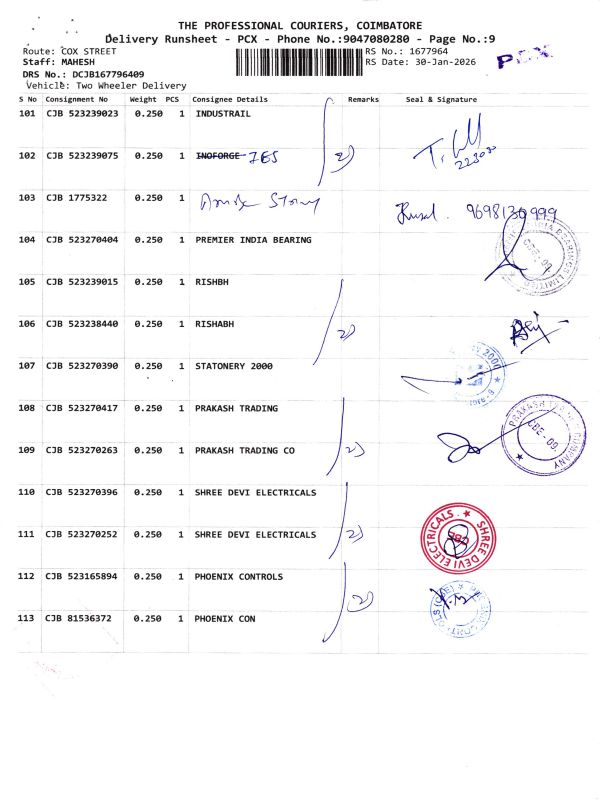 THE PROFESSIONAL COURIERS, COIMBATORE
Delivery Runsheet - PCX - Phone No.:9047080280 - Page No.:9
Route: COX STREET RS No.: 1677964
Staff: MAHESH RS Date: 30-Jan-2026
PCX
DRS No.: DCJB167796409
Vehicle: Two Wheeler Delivery
S No Consignment No Weight PCS Consignee Details Remarks Seal & Signature
101 CJB 523239023 0.250 1 INDUSTRAIL
102 CJB 523239075 0.250 1 INOFORGE 2)
103 CJB 1775322 0.250 1 9698130999
104 CJB 523270404 0.250 1 PREMIER INDIA BEARING
105 CJB 523239015 0.250 1 RISHBH
106 CJB 523238440 0.250 1 RISHABH 2)
107 CJB 523270390 0.250 1 STATONERY 2000
108 CJB 523270417 0.250 1 PRAKASH TRADING
109 CJB 523270263 0.250 1 PRAKASH TRADING CO 2)
110 CJB 523270396 0.250 1 SHREE DEVI ELECTRICALS
111 CJB 523270252 0.250 1 SHREE DEVI ELECTRICALS 2)
SHREE DEVI ELECTRICALS
112 CJB 523165894 0.250 1 PHOENIX CONTROLS 2)
113 CJB 81536372 0.250 1 PHOENIX CON